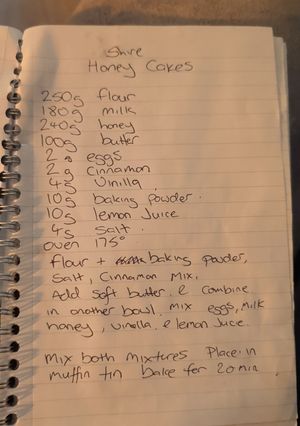 Shire
Honey Cakes
250g flour
180g milk
240g honey
100g butter
2 eggs
2g Cinnamon
4g Vinilla
10g baking powder.
10g lemon Juice
4g Salt.
oven 175°
flour + baking powder,
Salt, Cinnamon Mix.
Add Soft butter. & Combine
in another bowl. Mix eggs, Milk
honey, Vinilla. & lemon Juice.
Mix both mixtures Place in
muffin tin bake for 20 min.